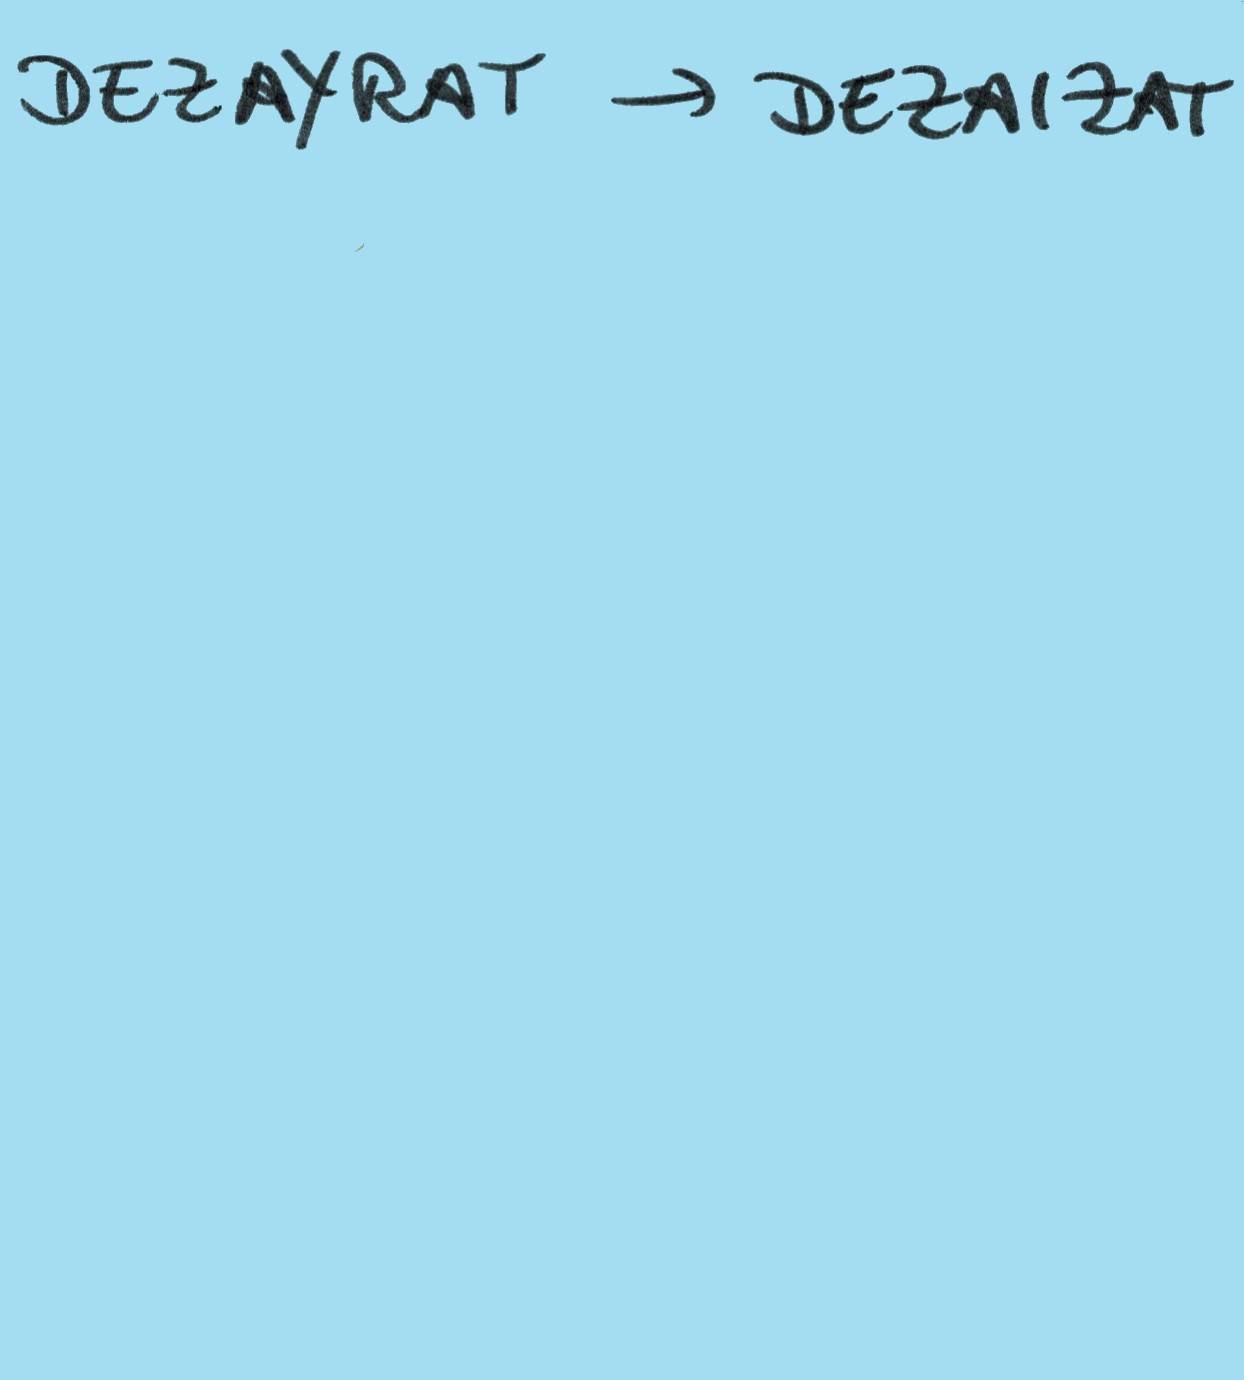 DEZAYRAT → DEZAIZAT